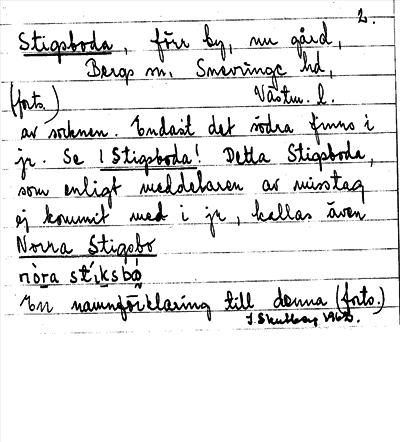 2.
Stigsboda, förr by, nu gård,
Bergs sn, Snevringe hd,
(forts.) Västm. l.
av socknen. Endast det södra finns i
jr. Se 1 Stigsboda! Detta Stigsboda,
som enligt meddelaren av misstag
ej kommit med i jr, kallas även
Norra Stigsbo
nòra stíksbò
En namnförklaring till denna (forts.)